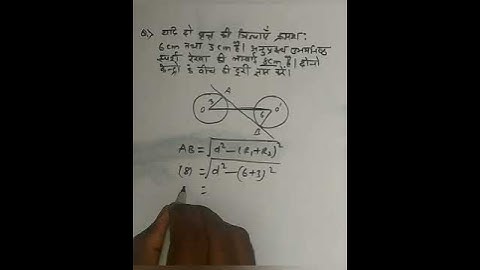 Q:> यदि दो वृत्त की त्रिज्याएँ क्रमशः
6 cm तथा 3 cm है। अनुप्रस्थ उभयनिष्ठ
स्पर्श रेखा की लम्बाई 8 cm है। दोनों
केन्द्रों के बीच की दूरी ज्ञात करें।
A
O 3 6 O'
B
AB = √d² - (R₁+R₂)²
(8) = √d² - (6+3)²
=